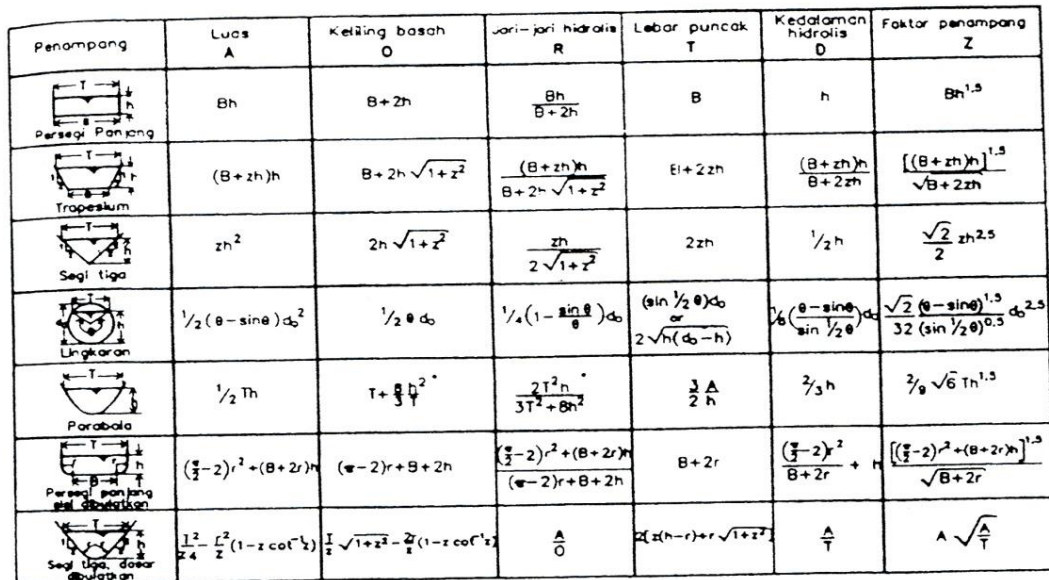 Penampang | Luas A | Keliling basah O | Jari-jari hidrolis R | Lebar puncak T | Kedalaman hidrolis D | Faktor penampang Z
T h B Persegi Panjang | Bh | B+2h | Bh/(B+2h) | B | h | Bh^1,5
T 1 z h B Trapesium | (B+zh)h | B+2h √(1+z²) | (B+zh)h / (B+2h √(1+z²)) | B+2zh | (B+zh)h / (B+2zh) | [(B+zh)h]^1,5 / √(B+2zh)
T 1 z h Segi tiga | zh² | 2h √(1+z²) | zh / (2 √(1+z²)) | 2zh | ½ h | (√2/2) zh^2,5
T h Lingkaran | ½ (θ-sinθ) d₀² | ½ θ d₀ | ¼ (1 - sinθ/θ) d₀ | (sin ½ θ) d₀ or 2 √(h(d₀-h)) | ⅛ ((θ-sinθ)/(sin ½ θ)) d₀ | (√2/32) (θ-sinθ)^1,5 / (sin ½ θ)^0,5 d₀^2,5
T Parabola | ½ Th | T + (8/3) (h²/T) * | 2T²h / (3T²+8h²) * | (3/2) (A/h) | ⅔ h | 2/9 √6 Th^1,5
T r h B Persegi panjang sisi dibulatkan | (π/2 - 2) r² + (B+2r)h | (π-2)r + B + 2h | ((π/2 - 2) r² + (B+2r)h) / ((π-2)r + B + 2h) | B+2r | (π/2 - 2) r² / (B+2r) + h | [(π/2 - 2) r² + (B+2r)h]^1,5 / √(B+2r)
T 1 z r h Segi tiga, dasar dibulatkan | T²/z4 - r²/z (1-z cot⁻¹z) | T/z √(1+z²) - 2r/z (1-z cot⁻¹z) | A/O | 2[z(h-r)+r √(1+z²)] | A/T | A √(A/T)